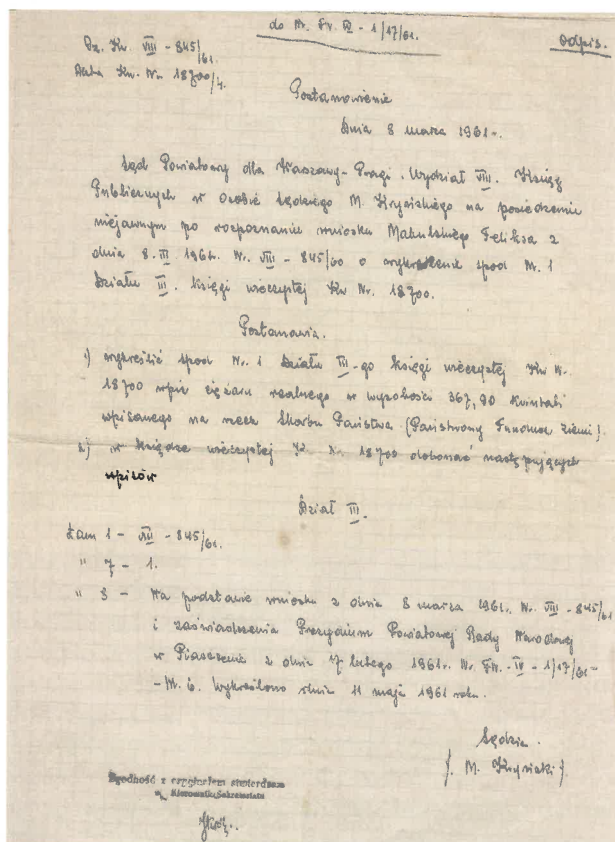 do Nr. Fn. IV - 1/17/61.
Odpis.
Dz. Kw VIII - 845/61.
Kw. Nr. 18700/4.
Postanowienie
Dnia 8 marca 1961 r.
Sąd Powiatowy dla Warszawy-Pragi. Wydział VIII. Ksiąg
Publicznych w Osobie Sędziego M. Krysińskiego na posiedzeniu
niejawnym po rozpoznaniu wniosku Makulskiego Feliksa z
dnia 8. III 1961. Nr. VIII - 845/60 o wykreślenie spod Nr. 1
Działu III. księgi wieczystej Kw Nr. 18700.
Postanawia.
1) wykreślić spod Nr. 1 Działu III-go księgi wieczystej Kw N.
18700 wpis ciężaru realnego w wysokości 367,90 kwintali
wpisanego na rzecz Skarbu Państwa (Państwowy Fundusz Ziemi).
2) w księdze wieczystej Nr 18700 dokonać następujących
wpisów
Dział III.
Łam 1 - VIII - 845/61.
" 7 - 1.
" 8 - Na podstawie wniosku z dnia 8 marca 1961r. Nr. VIII - 845/61
i zaświadczenia Prezydium Powiatowej Rady Narodowej
w Piasecznie z dnia 17 lutego 1961r. Nr. FN. - IV - 1/17/61 -
Wykreślono dnia 11 maja 1961 roku.
Sędzia.
/. M. Krysiński /.
Zgodność z oryginałem stwierdzam
Kierownik Sekretariatu